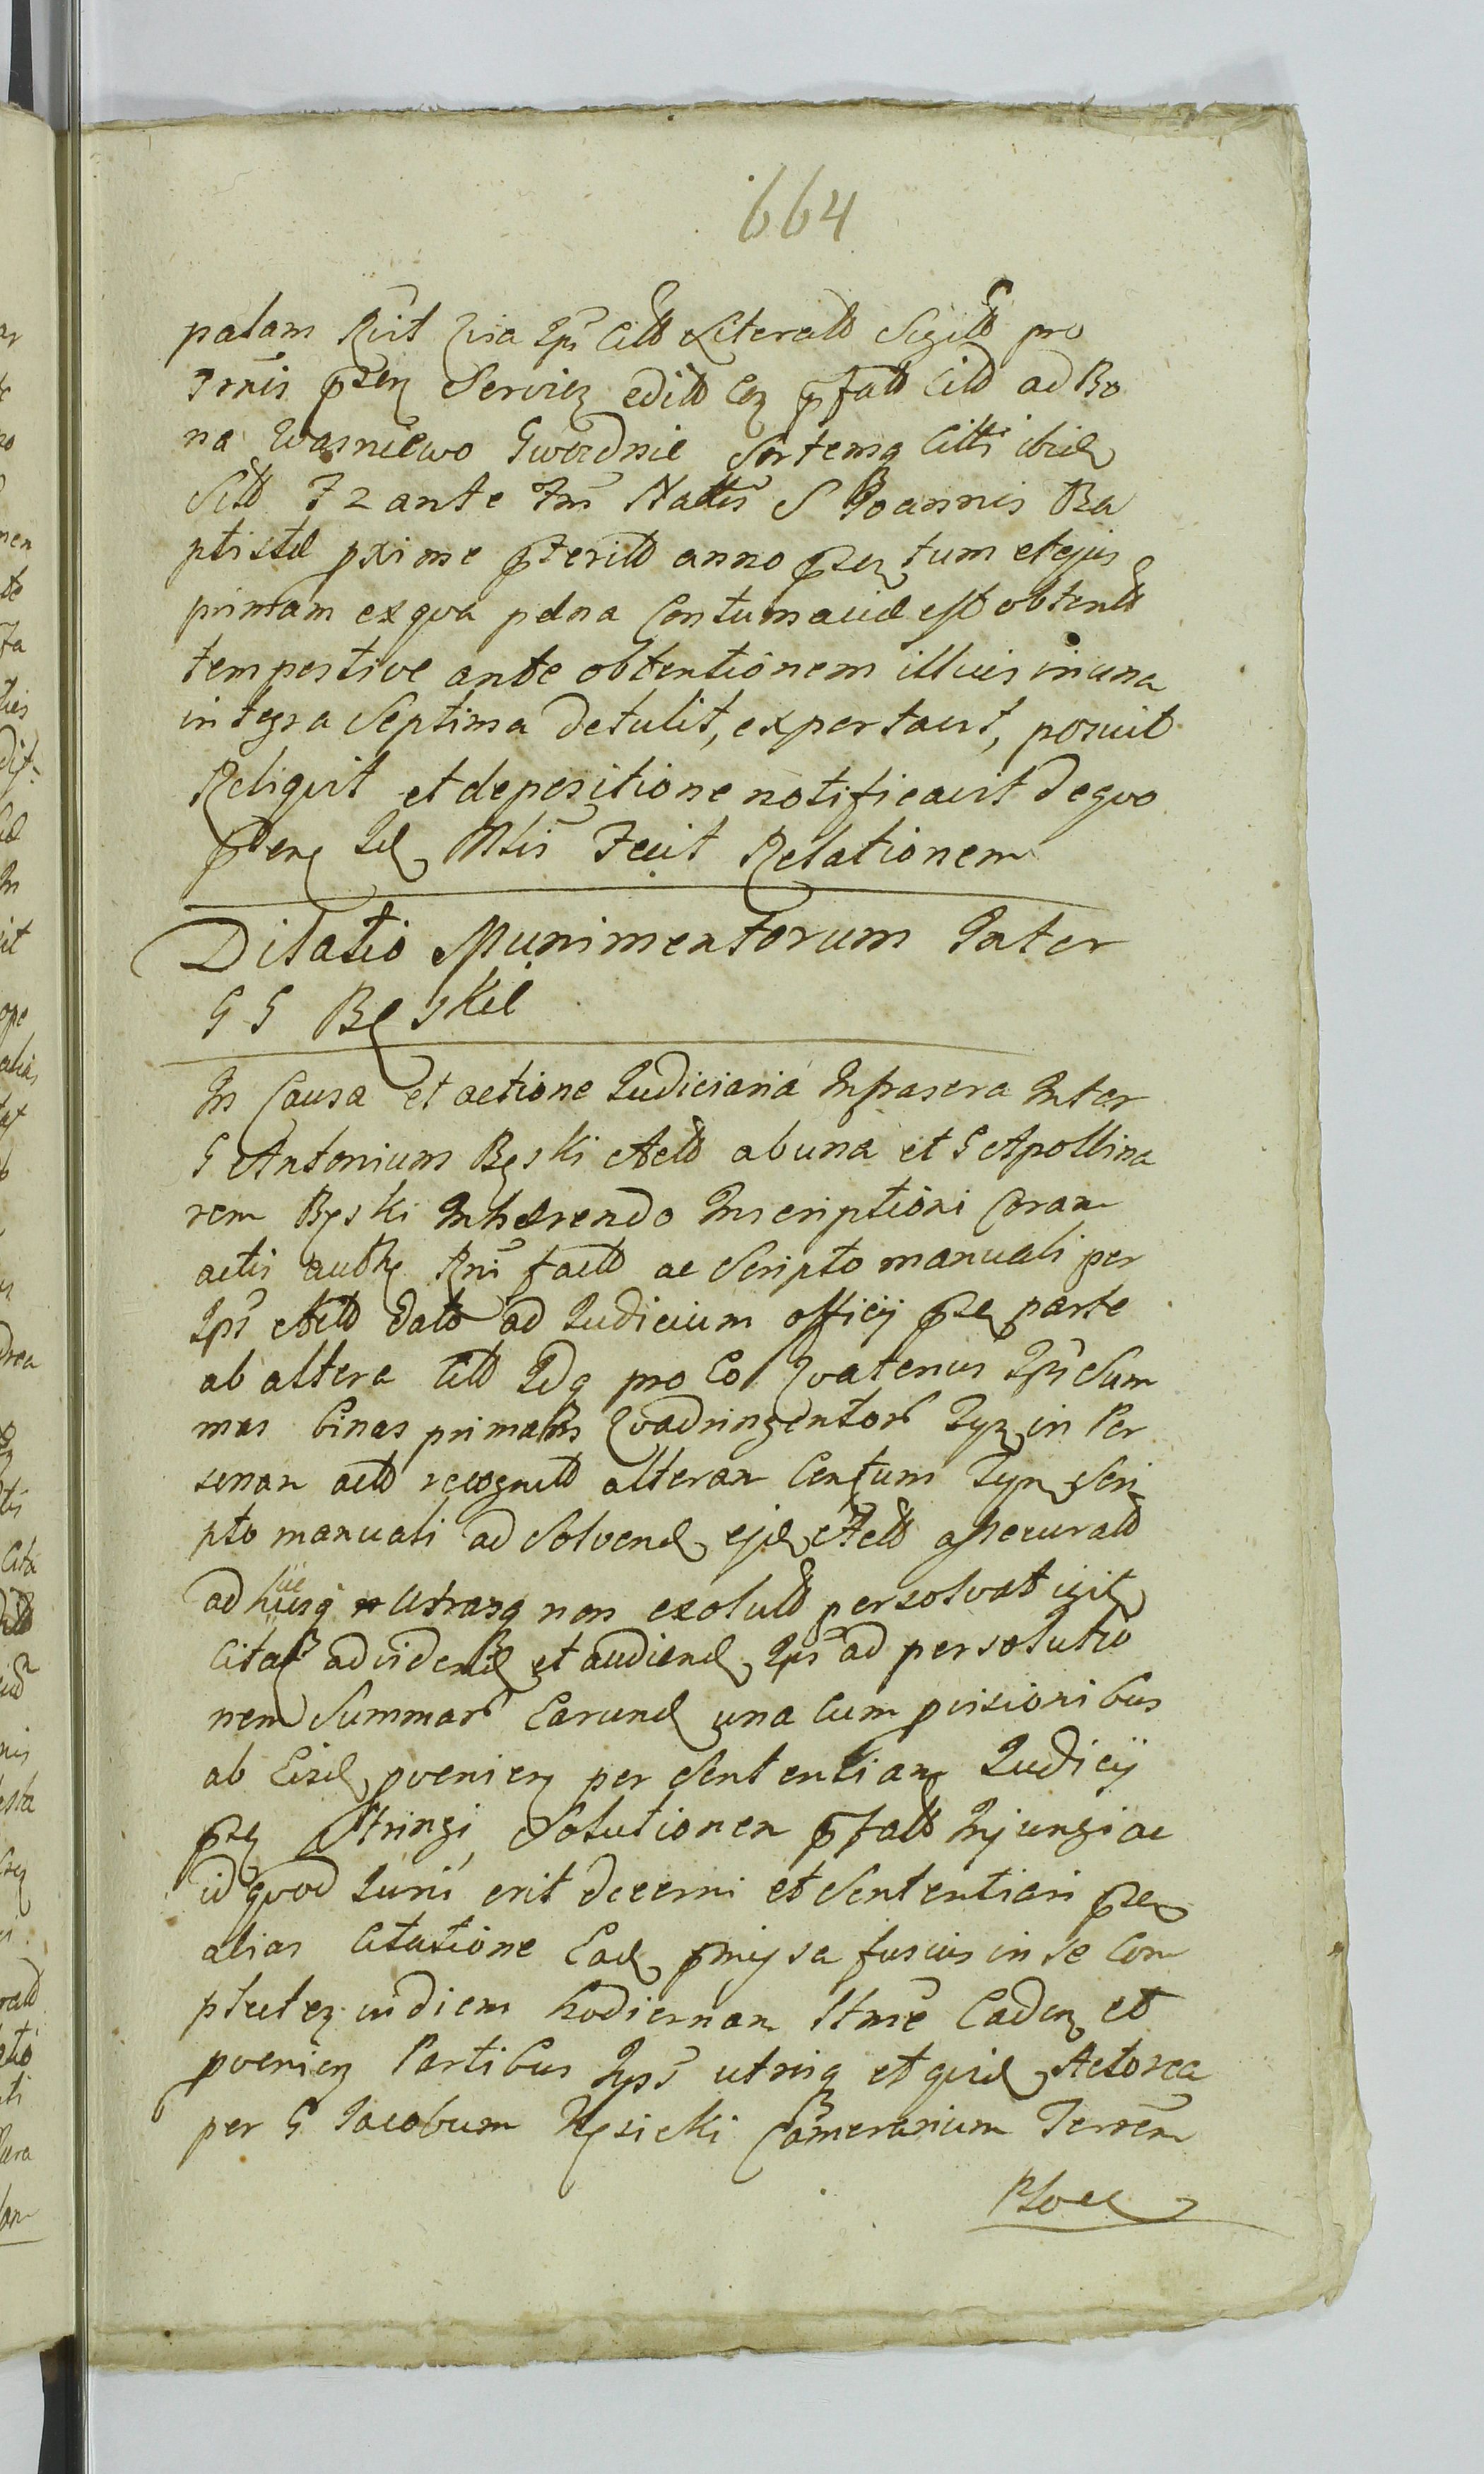 664
palam Rcit Via Ips Citto Literatto Sigitto pro
Trnis pzen Servien editto Cen pfatto Citto ad Bo
na Wasniewo Gwozdnie Sortemq Citti ibid
Sitto F 2 ante Fm Nattis S Joannis Ba
ptistæ pxime pteritto anno pzen tum et ejus
primam ex qva pæna Contumaciæ est obtentto
tempestive ante obtentionem illius in una
integra Septima detulit, exportavit, posuit
Reliqvit et de positione notificavit de qvo
pzen Id Mlis Fecit Relationem
Dilatio Munimentorum Inter
G G Bęskie
In Causa et actione Judiciaria Infrascra Inter
G Antonium Bęski Actto ab una et G Apollina
rem Bęski Inhærendo Inscriptioni Coram
actis auth Rni factto ac Scripto manuali per
Ips Actto datto ad Judicium officij pzen parte
ab altera Citto Idq pro Eo Qvatenus Ips Sum
mas binas primam Qvadringentor Tyn in Per
sonam actto recognitto alteram Centum Tyn Scri
pto manuali ad Solvend ejd Actto assecuratto
ad hucusq Utramq non exolutto persolvat igit
Citat ad vidend et audiend Ips ad persolutio
nem Summar Earund una Cum pvisionibus
ab Eisd pvenien per Sententiam Judicij
pzen Stringi, Solutionem pfatto Injungi ac
id qvod Juris erit decerni et Sententiari pzen
alias Citatione Ead pmissa fusius in Se Com
plecten in diem hodiernam Ttme Caden et
pvenien Partibus Ips utrinq et qvid Actorea
per G Jacobum Kęsicki Camerarium Terrem
Ploce